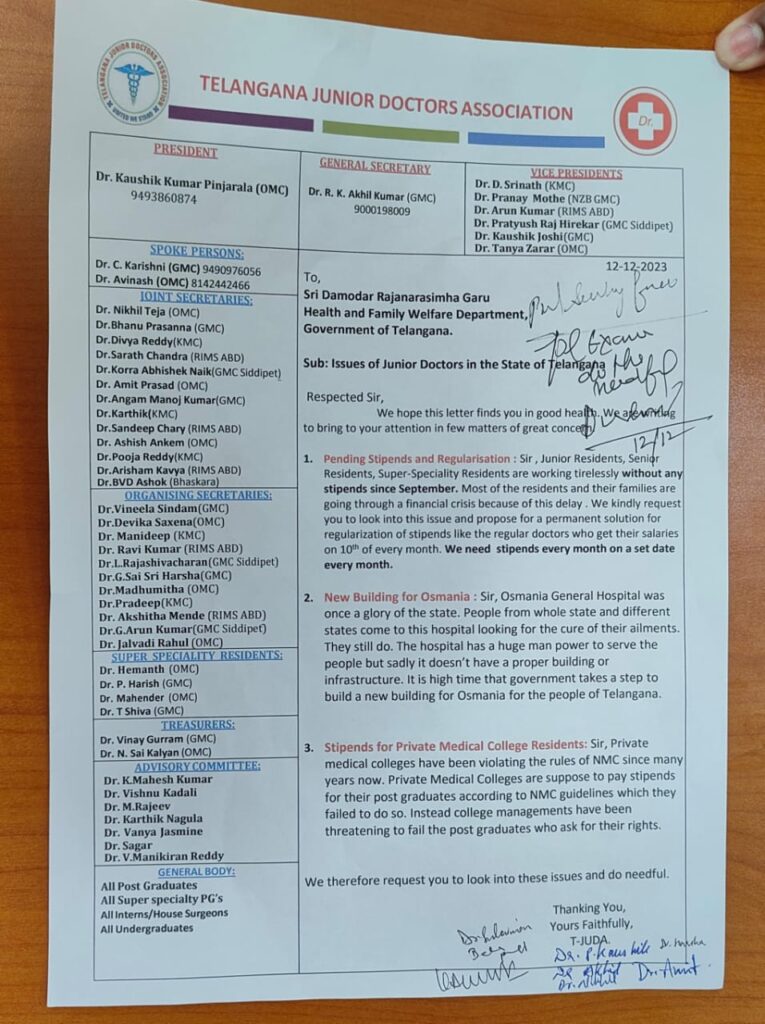 TELANGANA JUNIOR DOCTORS ASSOCIATION
UNITED WE STAND
TELANGANA JUNIOR DOCTORS ASSOCIATION
Dr.
PRESIDENT
Dr. Kaushik Kumar Pinjarala (OMC)
9493860874
GENERAL SECRETARY
Dr. R. K. Akhil Kumar (GMC)
9000198009
VICE PRESIDENTS
Dr. D. Srinath (KMC)
Dr. Pranay Mothe (NZB GMC)
Dr. Arun Kumar (RIMS ABD)
Dr. Pratyush Raj Hirekar (GMC Siddipet)
Dr. Kaushik Joshi(GMC)
Dr. Tanya Zarar (OMC)
SPOKE PERSONS:
Dr. C. Karishni (GMC) 9490976056
Dr. Avinash (OMC) 8142442466
JOINT SECRETARIES:
Dr. Nikhil Teja (OMC)
Dr.Bhanu Prasanna (GMC)
Dr.Divya Reddy(KMC)
Dr.Sarath Chandra (RIMS ABD)
Dr.Korra Abhishek Naik(GMC Siddipet)
Dr. Amit Prasad (OMC)
Dr.Angam Manoj Kumar(GMC)
Dr.Karthik(KMC)
Dr.Sandeep Chary (RIMS ABD)
Dr. Ashish Ankem (OMC)
Dr.Pooja Reddy(KMC)
Dr.Arisham Kavya (RIMS ABD)
Dr.BVD Ashok (Bhaskara)
ORGANISING SECRETARIES:
Dr.Vineela Sindam(GMC)
Dr.Devika Saxena(OMC)
Dr. Manideep (KMC)
Dr. Ravi Kumar (RIMS ABD)
Dr.L.Rajashivacharan(GMC Siddipet)
Dr.G.Sai Sri Harsha(GMC)
Dr.Madhumitha (OMC)
Dr.Pradeep(KMC)
Dr. Akshitha Mende (RIMS ABD)
Dr.G.Arun Kumar(GMC Siddipet)
Dr. Jalvadi Rahul (OMC)
SUPER SPECIALITY RESIDENTS:
Dr. Hemanth (OMC)
Dr. P. Harish (GMC)
Dr. Mahender (OMC)
Dr. T Shiva (GMC)
TREASURERS:
Dr. Vinay Gurram (GMC)
Dr. N. Sai Kalyan (OMC)
ADVISORY COMMITTEE:
Dr. K.Mahesh Kumar
Dr. Vishnu Kadali
Dr. M.Rajeev
Dr. Karthik Nagula
Dr. Vanya Jasmine
Dr. Sagar
Dr. V.Manikiran Reddy
GENERAL BODY:
All Post Graduates
All Super specialty PG's
All Interns/House Surgeons
All Undergraduates
12-12-2023
To,
Sri Damodar Rajanarasimha Garu
Health and Family Welfare Department,
Government of Telangana.
do the
needful
12/12
Sub: Issues of Junior Doctors in the State of Telangana
Respected Sir,
We hope this letter finds you in good health. We are writing
to bring to your attention in few matters of great concern
1. Pending Stipends and Regularisation : Sir , Junior Residents, Senior
Residents, Super-Speciality Residents are working tirelessly without any
stipends since September. Most of the residents and their families are
going through a financial crisis because of this delay . We kindly request
you to look into this issue and propose for a permanent solution for
regularization of stipends like the regular doctors who get their salaries
on 10th of every month. We need stipends every month on a set date
every month.
2. New Building for Osmania : Sir, Osmania General Hospital was
once a glory of the state. People from whole state and different
states come to this hospital looking for the cure of their ailments.
They still do. The hospital has a huge man power to serve the
people but sadly it doesn't have a proper building or
infrastructure. It is high time that government takes a step to
build a new building for Osmania for the people of Telangana.
3. Stipends for Private Medical College Residents: Sir, Private
medical colleges have been violating the rules of NMC since many
years now. Private Medical Colleges are suppose to pay stipends
for their post graduates according to NMC guidelines which they
failed to do so. Instead college managements have been
threatening to fail the post graduates who ask for their rights.
We therefore request you to look into these issues and do needful.
Thanking You,
Yours Faithfully,
T-JUDA.
Dr. P. Kaushik
Dr Akhil
Dr. Nikhil
Dr. Amit